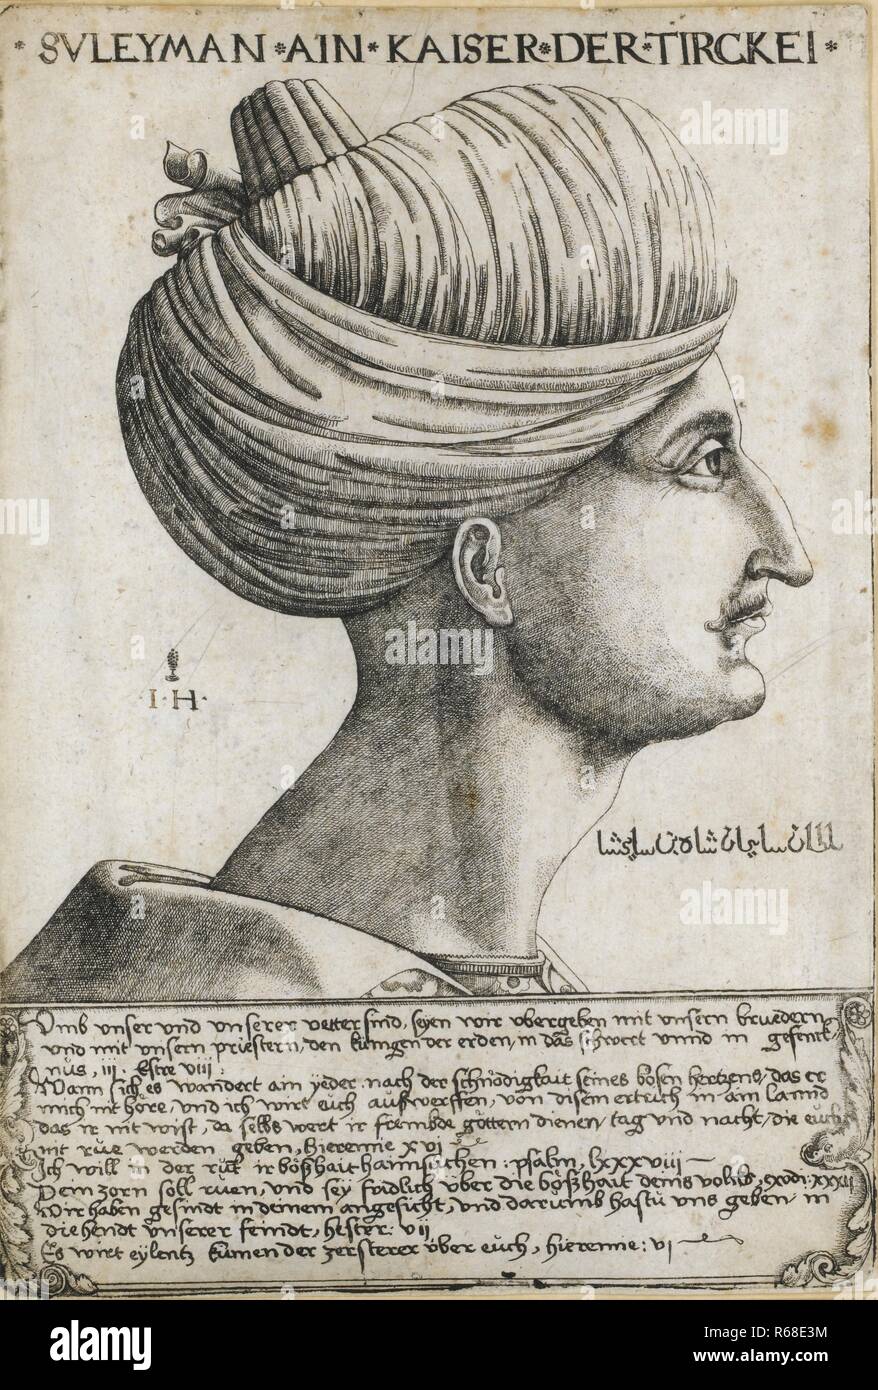 * SVLEYMAN * AIN * KAISER * DER * TIRCKEI *
· I · H ·
Vmb vnser vnd vnserer vetter sind, seyen wir vbergeben mit vnsern bruedern
vnd mit vnsern priestern, den kungen der erden, in das schwert vnnd in gefenck
nüs, iii. Esre viii.
Wann sich es wandert ain yeder nach der schnödigkait seines bösen hertzens, das er
mich nit höre, vnd ich wirt euch aufwerffen, von disem ertrich in ain lannd
das ir nit wist, da selbs wert ir frembde göttern dienen, tag vnd nacht, die euch
nit rue werden geben, hieremie xvi
Ich will in der rüt ir boßhait haimsuchen: psalm, lxxxviii
Dein zorn soll rüen, vnd sey fridlich vber die boßhait deins volks, exodi: xxxii
Wir haben gesündt in deinem angesicht, vnd darumb hastu vns geben in
die hendt vnserer feindt, hester: vii
Es wirt eylentz kumen der zersterer vber euch, hieremie: vi
alamy
Image ID: R68E3M
www.alamy.com